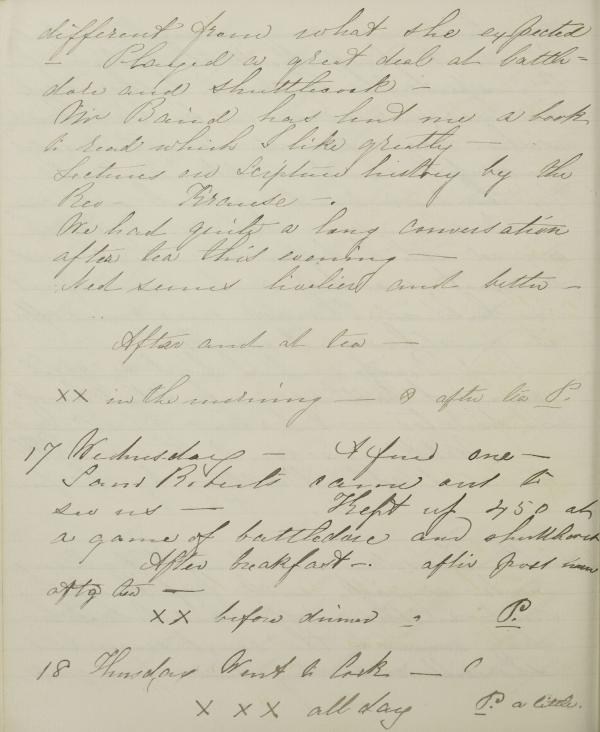 different from what she expected
— Played a great deal at battle-
dore and shuttlecock —
Mr Baird has lent me a book
to read which I like greatly —
Lectures on Scripture history by the
Rev Krause —.
We had quite a long conversation
after tea this evening —
Ned seems livelier and better —
After and at tea —
XX in the morning — & after tea P.
17 Wednesday — A fine one —
Sam Roberts came out to
see us — Kept up 450 at
a game of battledore and shuttlecock
After breakfast —. after
after tea —
XX before dinner P.
18 Thursday Went to Cork —
X X X all day P. a little.